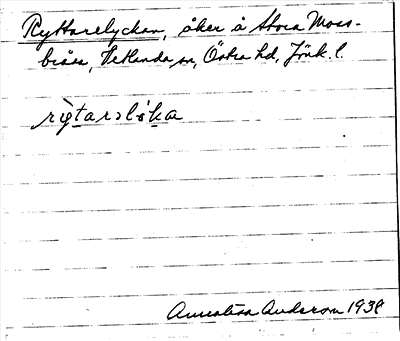 Ryttarelyckan, åker å Stora Moss-
bräss, Vetlanda sn, Östra hd, Jönk. l.
Annalisa Anderson 1938